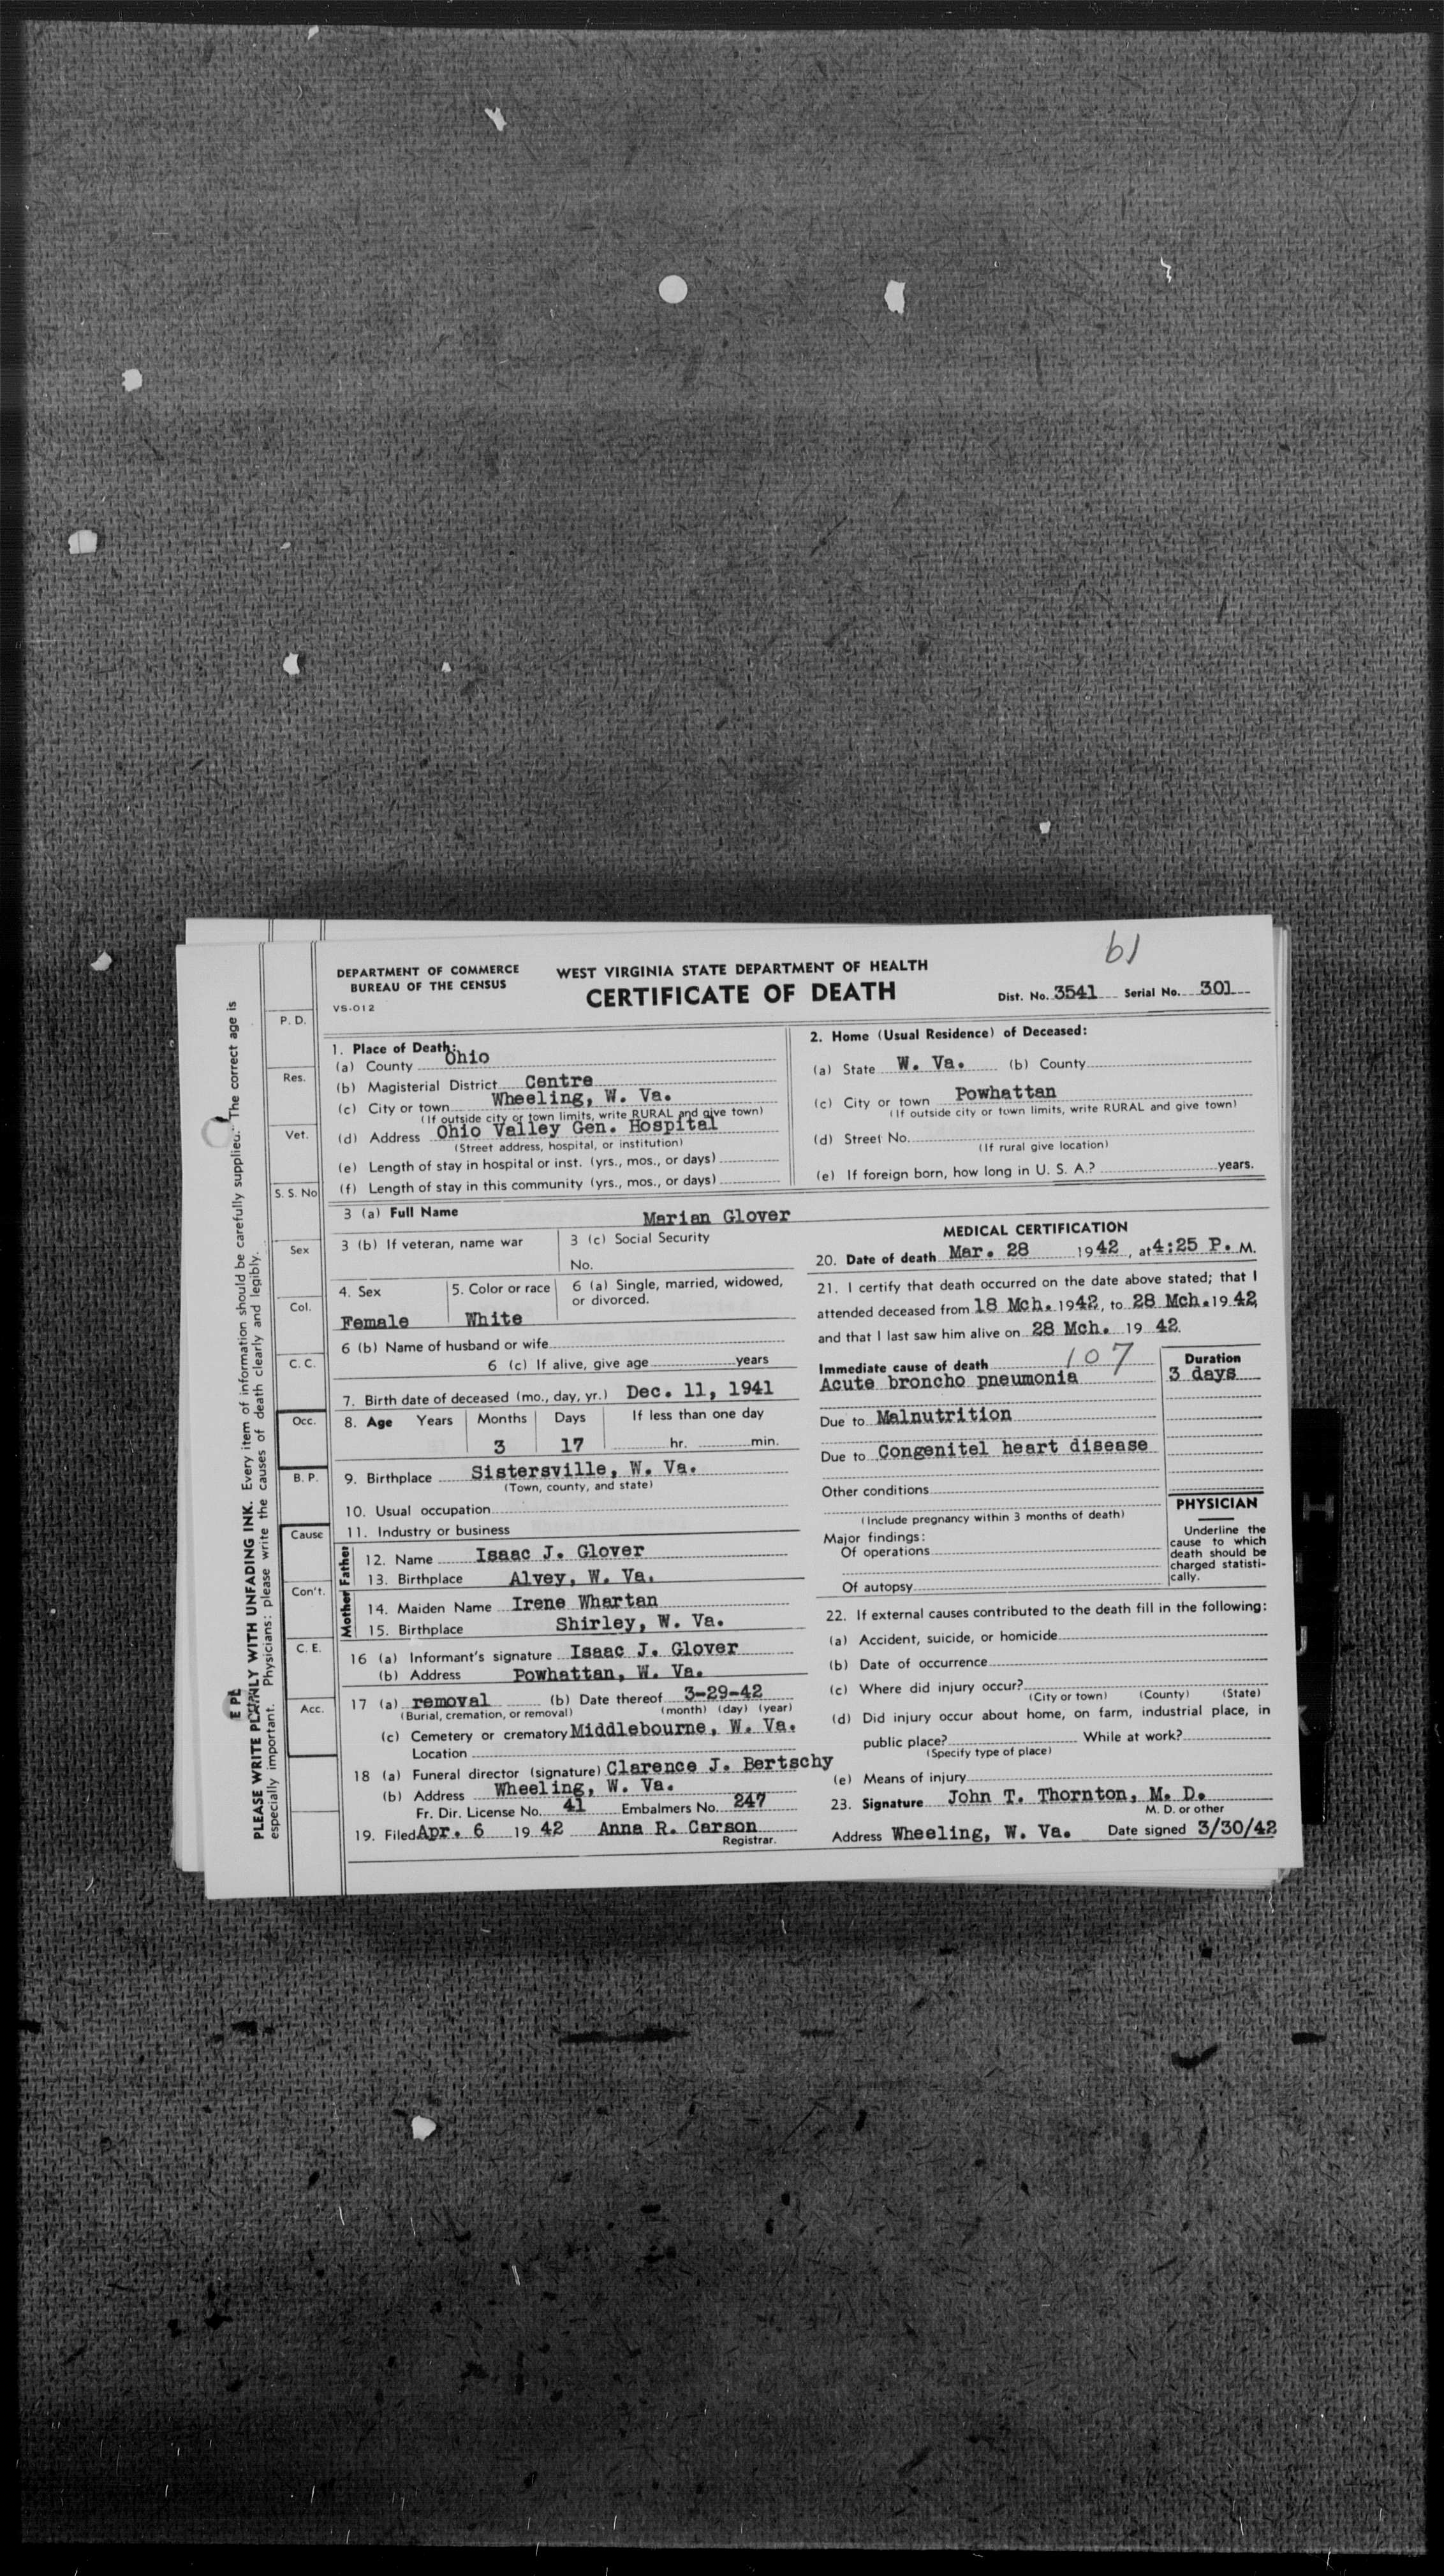 b1
DEPARTMENT OF COMMERCE
BUREAU OF THE CENSUS
VS-012
WEST VIRGINIA STATE DEPARTMENT OF HEALTH
CERTIFICATE OF DEATH
Dist. No. 3541 Serial No. 301
1. Place of Death:
(a) County Ohio
(b) Magisterial District Centre
(c) City or town Wheeling, W. Va.
(If outside city or town limits, write RURAL and give town)
(d) Address Ohio Valley Gen. Hospital
(Street address, hospital, or institution)
(e) Length of stay in hospital or inst. (yrs., mos., or days)
(f) Length of stay in this community (yrs., mos., or days)
2. Home (Usual Residence) of Deceased:
(a) State W. Va. (b) County
(c) City or town Powhattan
(If outside city or town limits, write RURAL and give town)
(d) Street No.
(If rural give location)
(e) If foreign born, how long in U. S. A.? years.
3 (a) Full Name Marian Glover
3 (b) If veteran, name war
3 (c) Social Security
No.
4. Sex
Female
5. Color or race
White
6 (a) Single, married, widowed,
or divorced.
6 (b) Name of husband or wife
6 (c) If alive, give age years
7. Birth date of deceased (mo., day, yr.) Dec. 11, 1941
8. Age Years Months Days If less than one day
3 17 hr. min.
9. Birthplace Sistersville, W. Va.
(Town, county, and state)
10. Usual occupation
11. Industry or business
Father
12. Name Isaac J. Glover
13. Birthplace Alvey, W. Va.
Mother
14. Maiden Name Irene Whartan
15. Birthplace Shirley, W. Va.
16 (a) Informant's signature Isaac J. Glover
(b) Address Powhattan, W. Va.
17 (a) removal (b) Date thereof 3-29-42
(Burial, cremation, or removal) (month) (day) (year)
(c) Cemetery or crematory Middlebourne, W. Va.
Location
18 (a) Funeral director (signature) Clarence J. Bertschy
(b) Address Wheeling, W. Va.
Fr. Dir. License No. 41 Embalmers No. 247
19. Filed Apr. 6 1942 Anna R. Carson
Registrar.
MEDICAL CERTIFICATION
20. Date of death Mar. 28 1942, at 4:25 P. M.
21. I certify that death occurred on the date above stated; that I
attended deceased from 18 Mch. 1942, to 28 Mch. 1942,
and that I last saw him alive on 28 Mch. 1942.
Immediate cause of death 107 Duration
Acute broncho pneumonia 3 days
Due to Malnutrition
Due to Congenitel heart disease
Other conditions
(Include pregnancy within 3 months of death)
Major findings:
Of operations
Of autopsy
PHYSICIAN
Underline the
cause to which
death should be
charged statisti-
cally.
22. If external causes contributed to the death fill in the following:
(a) Accident, suicide, or homicide
(b) Date of occurrence
(c) Where did injury occur?
(City or town) (County) (State)
(d) Did injury occur about home, on farm, industrial place, in
public place? While at work?
(Specify type of place)
(e) Means of injury
23. Signature John T. Thornton, M. D.
M. D. or other
Address Wheeling, W. Va. Date signed 3/30/42
P. D.
Res.
Vet.
S. S. No
Sex
Col.
C. C.
Occ.
B. P.
Cause
Con't.
C. E.
Acc.
PLEASE WRITE PLAINLY WITH UNFADING INK. Every item of information should be carefully supplied. The correct age is
especially important. Physicians: please write the causes of death clearly and legibly.
E PL